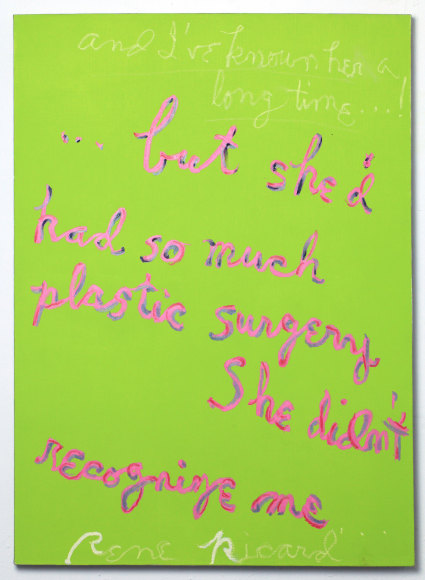 and I've known her a
long time...!
... but she'd
had so much
plastic surgery
She didn't
recognize me
Rene Ricard